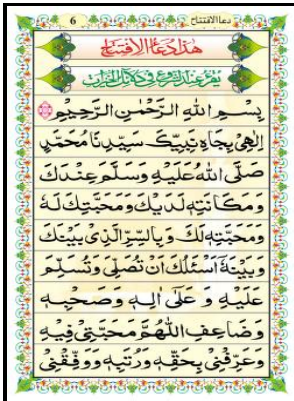 6
دعاالافتتاح
هٰذَا دُعَاالْاِفْتِتَاحْ
يُقْرَءُ عِنْدَ الشُّرُوْعِ فِيْ دَلَائِلِ الْخَيْرَاتِ
بِسْمِ اللّٰهِ الرَّحْمٰنِ الرَّحِيْمِ
اِلٰهِيْ بِجَاهِ نَبِيِّكَ سَيِّدِنَا مُحَمَّدٍ
صَلَّى اللّٰهُ عَلَيْهِ وَسَلَّمَ عِنْدَكَ
وَمَكَانَتِهٖ لَدَيْكَ وَمَحَبَّتِكَ لَهٗ
وَمَحَبَّتِهٖ لَكَ وَبِالسِّرِّ الَّذِيْ بَيْنَكَ
وَبَيْنَهٗ اَسْئَلُكَ اَنْ تُصَلِّيَ وَتُسَلِّمَ
عَلَيْهِ وَ عَلٰى اٰلِهٖ وَصَحْبِهٖ
وَضَاعِفِ اللّٰهُمَّ مَحَبَّتِيْ فِيْهِ
وَعَرِّفْنِيْ بِحَقِّهٖ وَرُتَبِهٖ وَوَفِّقْنِيْ